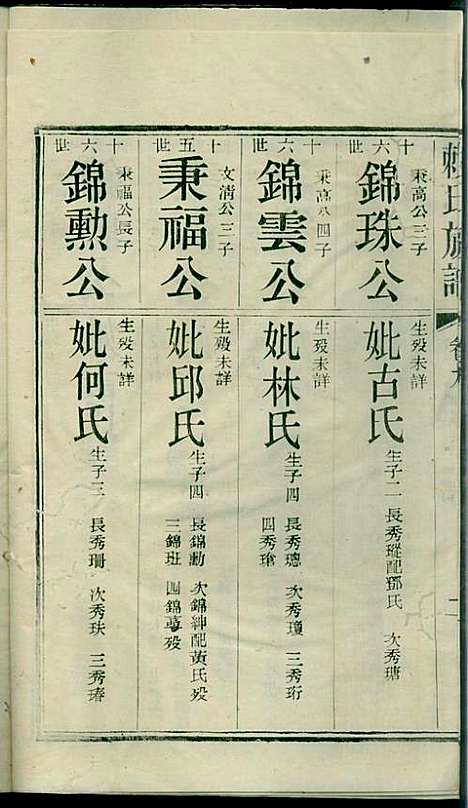 賴氏族譜
卷九
二
十六世
秉高公三子
錦珠公
生歿未詳
妣古氏
生子二 長秀瑽配鄧氏 次秀瑭
十六世
秉高公四子
錦雲公
生歿未詳
妣林氏
生子四 長秀璁 次秀瓊 三秀珩
四秀瑲
十五世
文清公三子
秉福公
生歿未詳
妣邱氏
生子四 長錦勳 次錦紳配黃氏歿
三錦班 四錦蕚歿
十六世
秉福公長子
錦勳公
生歿未詳
妣何氏
生子三 長秀珊 次秀玞 三秀瑃